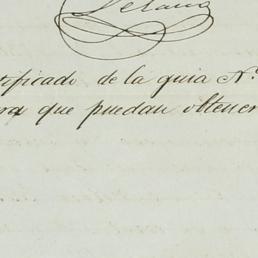 tificado de la guia Nº
que puedan obtener